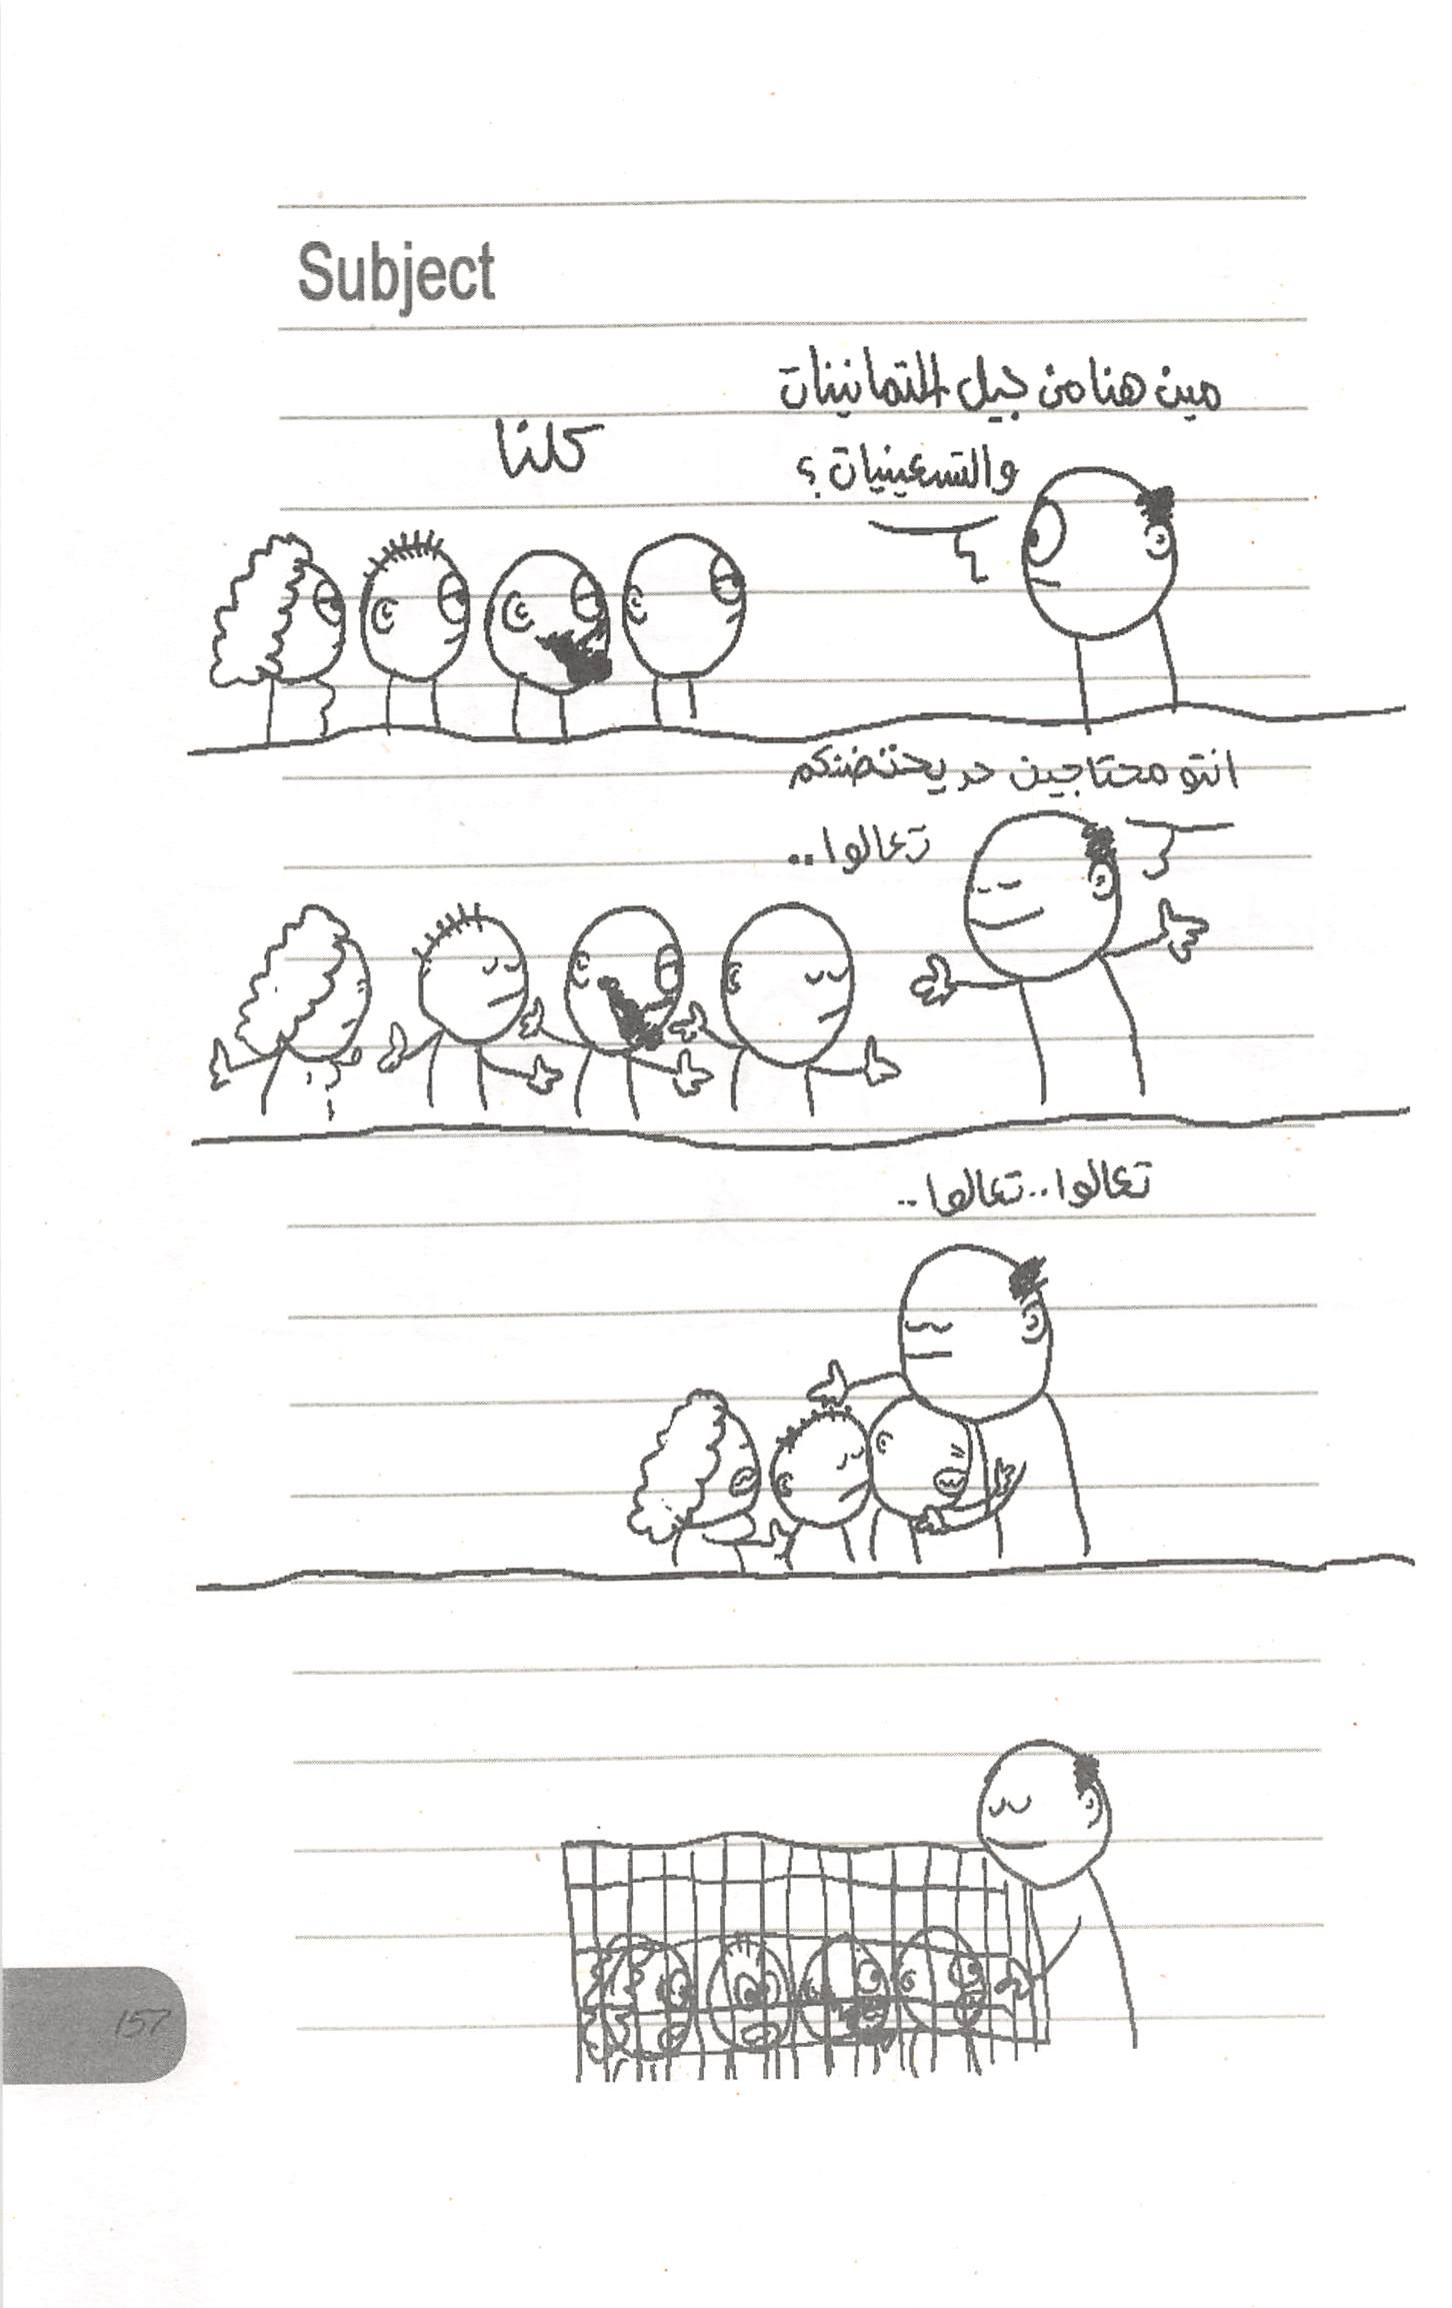 Subject
مين هنا من جيل التمانينات
والتسعينيات؟
كلنا
انتو محتاجين حد يحتضنكم
تعالوا..
تعالوا.. تعالوا..
157